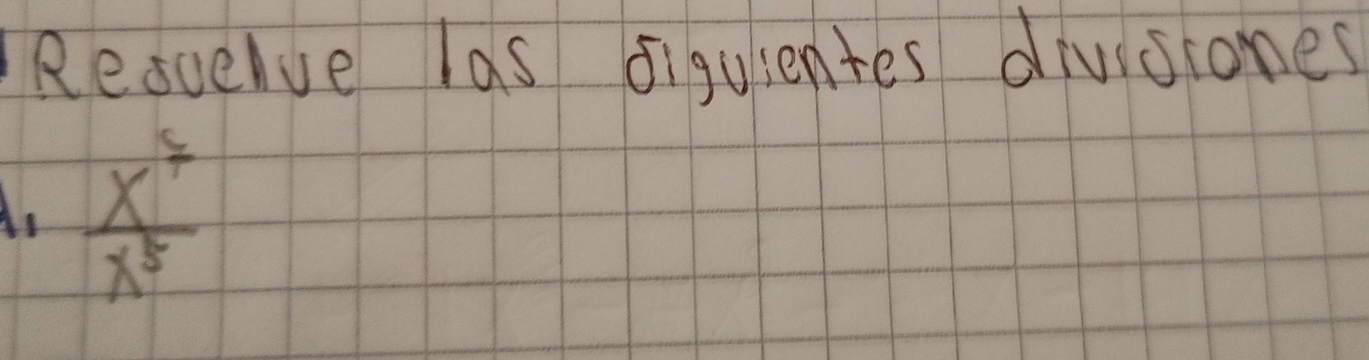 Resuelve las siguientes divisiones
1. x^7 / x^5